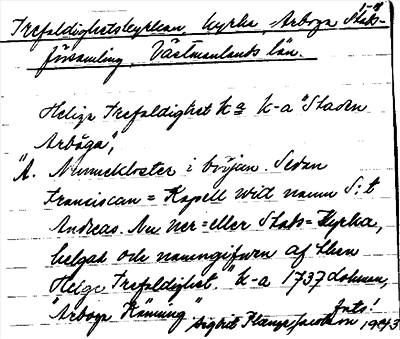 Trefaldighetskyrkan, kyrka, Arboga Stads-
församling, Västmanlands län.
Helige Trefaldighet ka k-a "Staden
Arboga",
"A. Nunnekloster i början. Sedan
Franciscan = Kapell wid namn S:t
Andreas. Nu ner = eller Stads = Kyrka,
helgad och namngifwen af then
Helge Trefaldighet." k-a 1737 dohmen,
"Arboga Känning".
Sigrid Flange Jacobson 1943